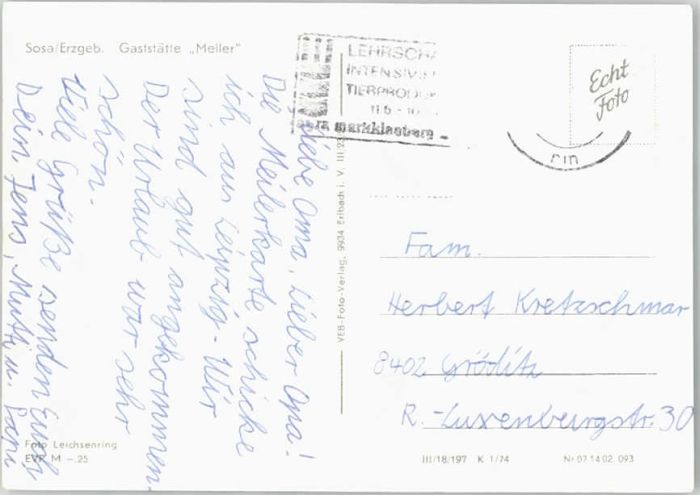 Sosa/Erzgeb. Gaststätte „Meiler"
Liebe Oma, Lieber Opa!
Die Meilerkarte schicke
ich aus Leipzig. Wir
sind gut angekommen.
Der Urlaub war sehr
schön.
Viele Grüße senden Euch
Dein Jens, Mutti u. Papi
Foto Leichsenring
EVP M –,25
VEB-Foto-Verlag, 9934 Erlbach i. V. III
LEHRSCHA
INTENSIV
TIERPRODUK
markkleeberg
Echt
Foto
rin
Fam.
Herbert Kretzschmar
8402 Gröditz
R.-Luxenburgstr. 30
III/18/197 K 1/74 Nr. 07 14 02 093